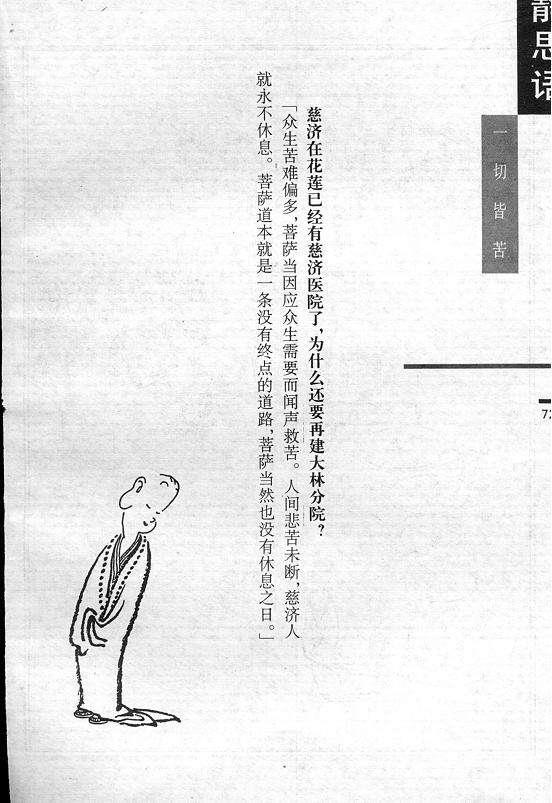 静思语
一切皆苦
慈济在花莲已经有慈济医院了，为什么还要再建大林分院？
「众生苦难偏多，菩萨当因应众生需要而闻声救苦。人间悲苦未断，慈济人
就永不休息。菩萨道本就是一条没有终点的道路，菩萨当然也没有休息之日。」